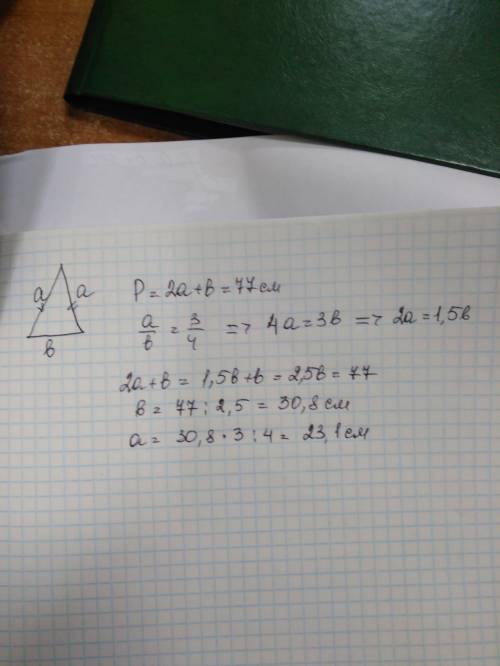 a a
b
P = 2a + b = 77 см
a/b = 3/4 => 4a = 3b => 2a = 1,5b
2a + b = 1,5b + b = 2,5b = 77
b = 77 : 2,5 = 30,8 см
a = 30,8 · 3 : 4 = 23,1 см